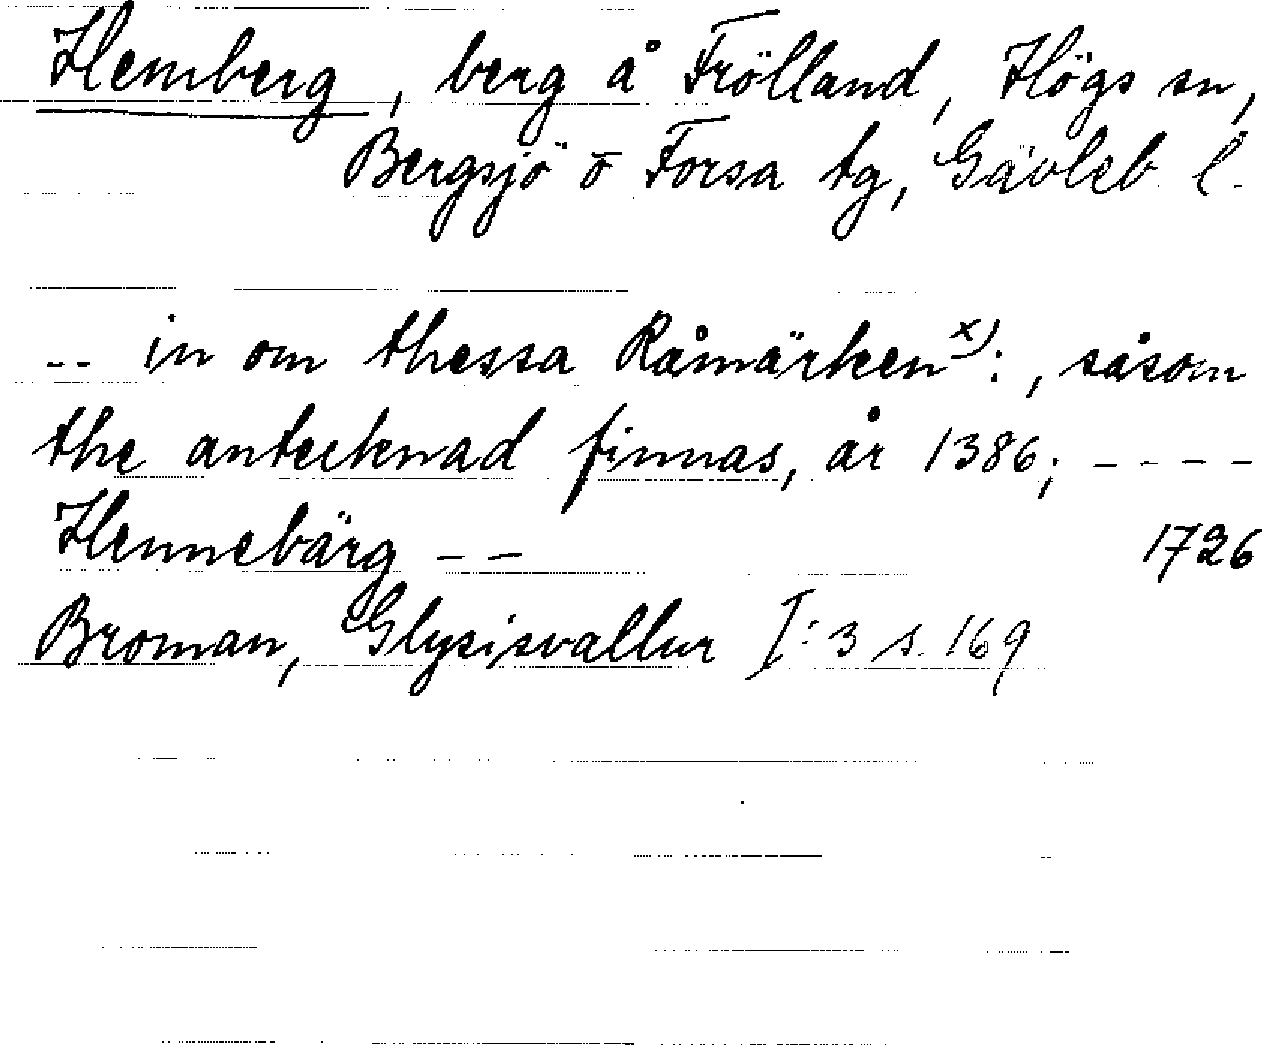 Hemberg, berg å Frölland, Högs sn,
Bergsjö o Forsa tg, Gävleb l.
-- in om thessa Råmärken x): , såsom
the antecknad finnas, år 1386; ----
Hennebärg -- 1726
Broman, Glysisvallur I:3 s. 169